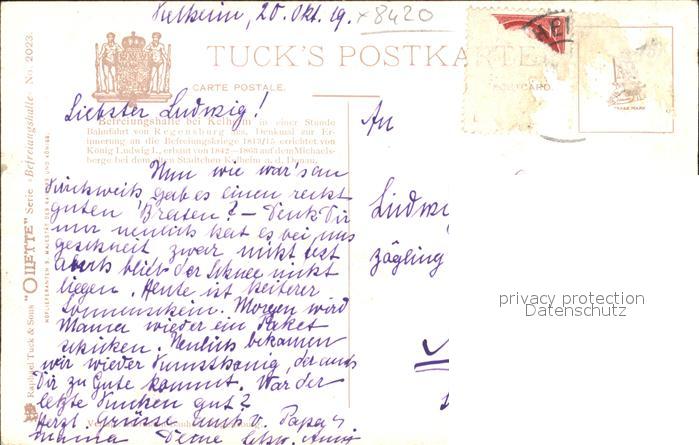 Kelheim, 20. Okt. 19.
8420
TUCK'S POSTKARTE
CARTE POSTALE.
POSTCARD.
TRADE MARK
Liebster Ludwig!
Befreiungshalle bei Kelheim in einer Stunde
Bahnfahrt von Regensburg aus. Denkmal zur Er-
innerung an die Befreiungskriege 1813/15 errichtet von
König Ludwig I., erbaut von 1842–1863 auf dem Michaels-
berge bei dem alten Städtchen Kelheim a. d. Donau.
Nun wie war's am
gab es einen recht
guten Braten? – Denk Dir
nur neulich hat es bei uns
geschneit zwar nicht fest
blieb der Schnee nicht
liegen. Heute ist heiterer
Sonnenschein. Morgen wird
Mama wieder ein Paket
schicken. Neulich bekamen
wir wieder Kunsthonig, der auch
Dir zu Gute kommt. War der
letzte Kuchen gut?
Herzl. Grüsse auch v. Papa u
Mama Deine Schw. Anni
An
Ludwi
zögling
Raphael Tuck & Sons "OILETTE" Serie „Befreiungshalle“ No. 2023.
HOFLIEFERANTEN S. MAJESTÄT DES
privacy protection
Datenschutz